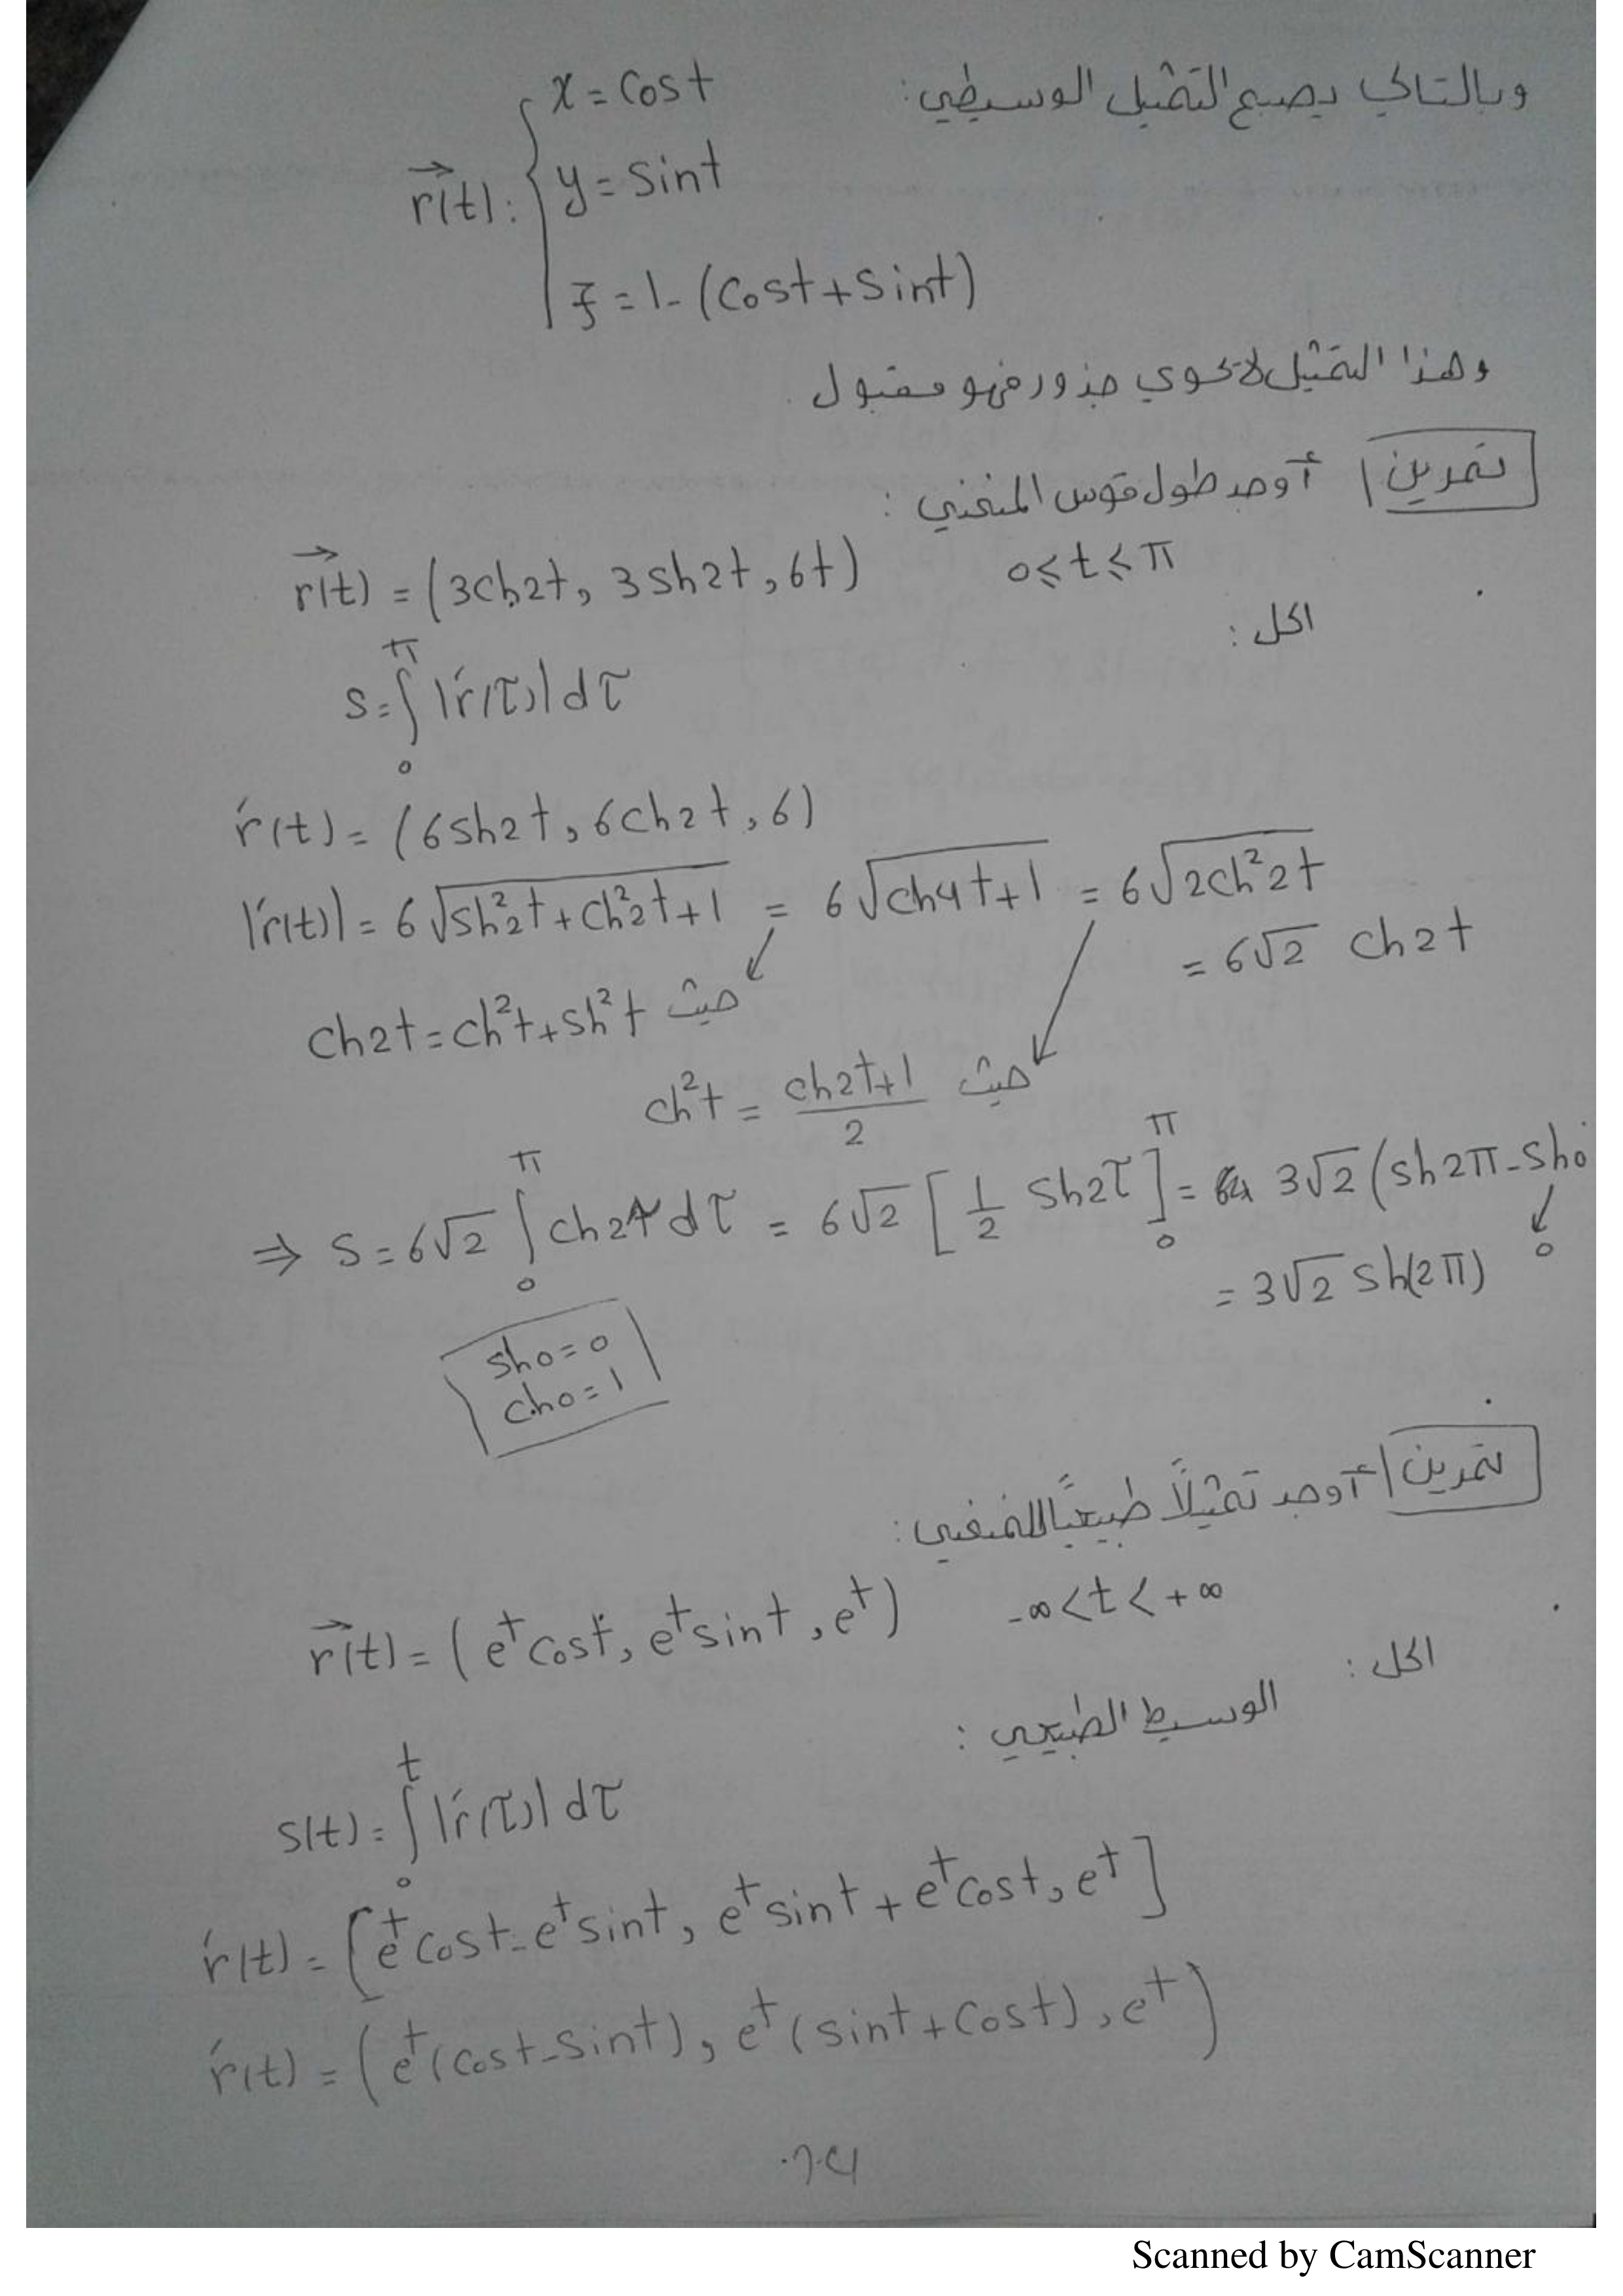 وبالتالي يصبح التمثيل الوسيطي:
x = cost
r(t): y = sint
z = 1-(cost+sint)
وهذا التمثيل لا يحوي جذور فهو مقبول.
تمرين | أوجد طول قوس المنحني:
r(t) = (3ch2t, 3sh2t, 6t) 0≤t≤π
الحل:
s = ∫₀^π |r′(τ)|dτ
r′(t) = (6sh2t, 6ch2t, 6)
|r′(t)| = 6√(sh²2t + ch²2t + 1) = 6√(ch4t+1) = 6√(2ch²2t)
= 6√2 ch2t
ch2t = ch²t + sh²t حيث
ch²t = (ch2t+1)/2 حيث
⇒ s = 6√2 ∫₀^π ch2τ dτ = 6√2 [1/2 sh2τ]₀^π = 3√2 (sh2π - sh0
0
= 3√2 sh(2π)
sh0=0
ch0=1
تمرين | أوجد تمثيلاً طبيعياً للمنحني:
r(t) = (eᵗcost, eᵗsint, eᵗ) -∞<t<+∞
الحل:
الوسيط الطبيعي:
s(t) = ∫₀^t |r′(τ)|dτ
r′(t) = [eᵗcost - eᵗsint, eᵗsint + eᵗcost, eᵗ]
r′(t) = (eᵗ(cost-sint), eᵗ(sint+cost), eᵗ)
Scanned by CamScanner